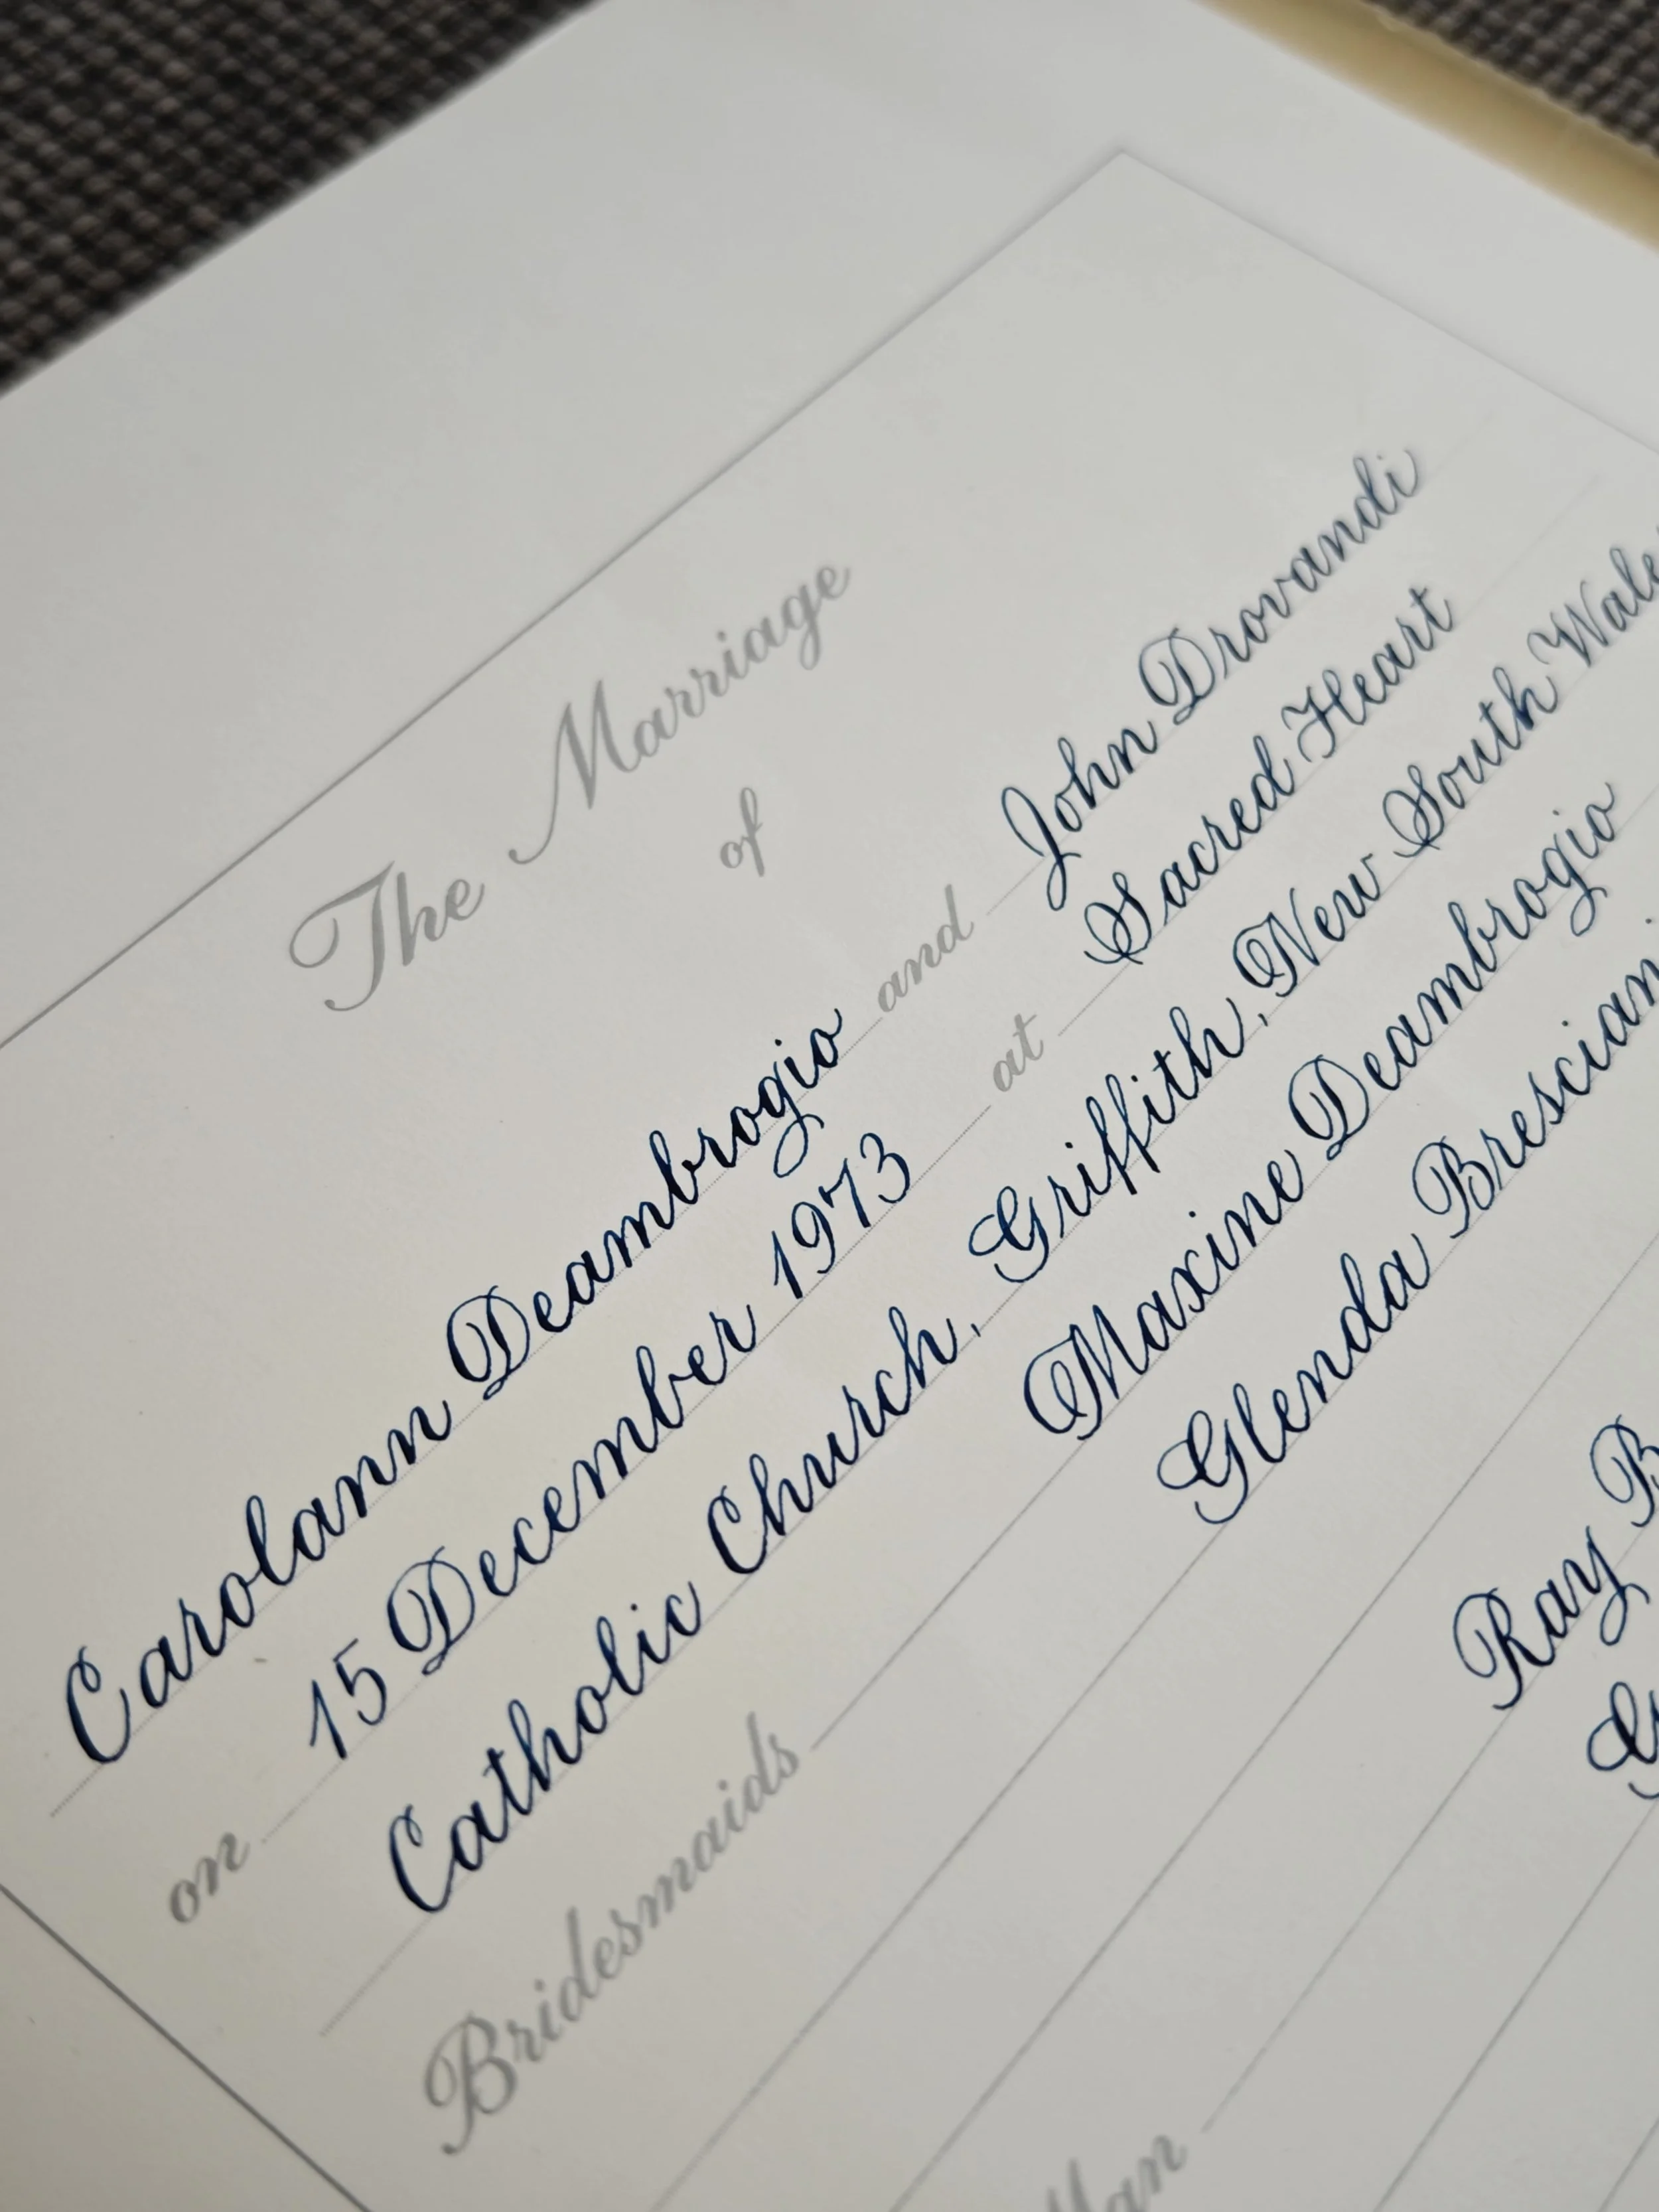 The Marriage
of
Carolann Deambrogio and John Drovandi
on 15 December 1973 at Sacred Heart
Catholic Church, Griffith, New South
Bridesmaids Maxine Deambrogio
Glenda
Ray